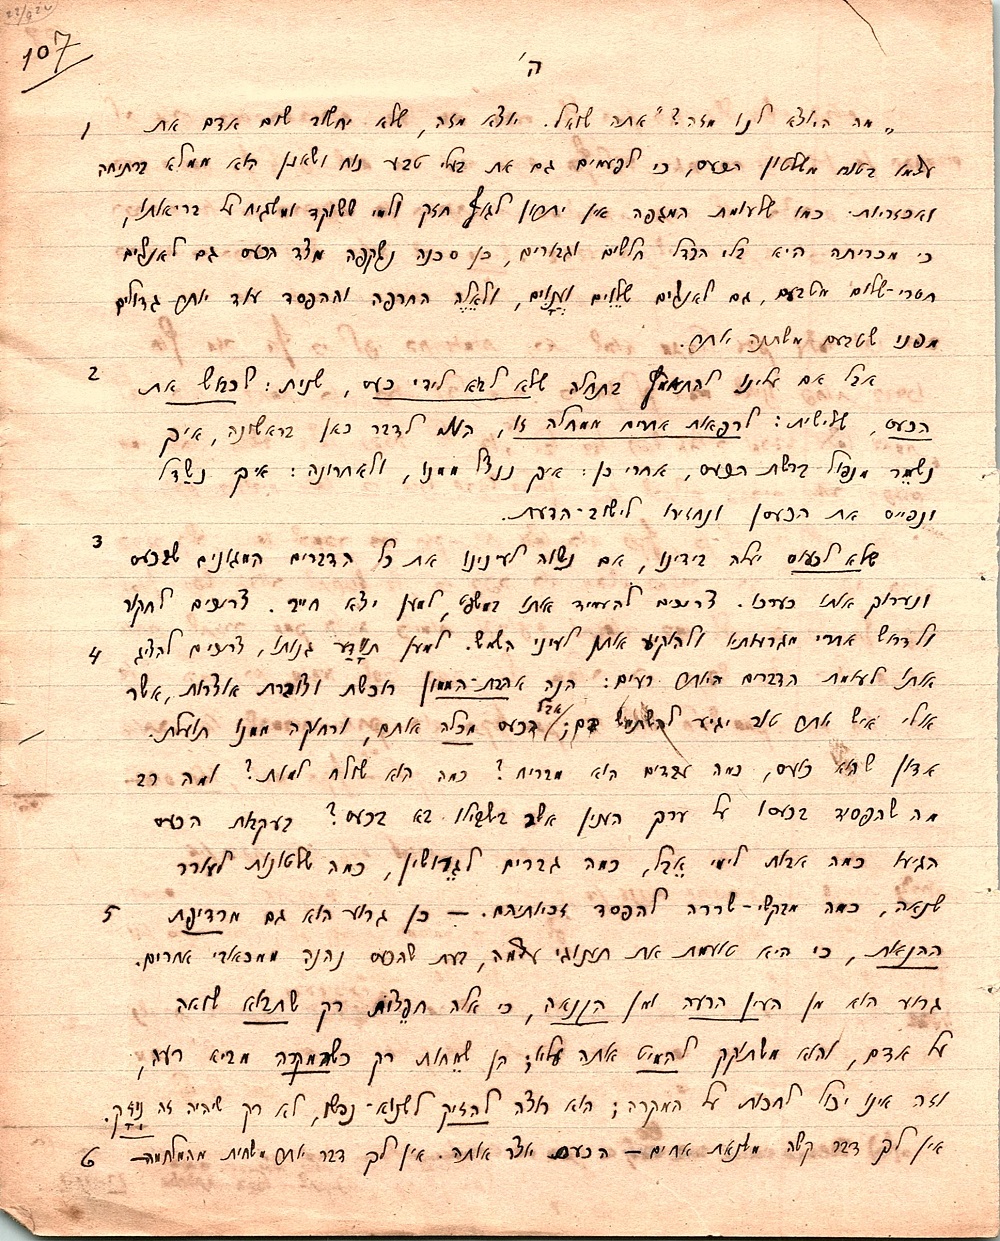 107
ה'
1 „מה היוצא לנו מזה?" אתה שואל. יוצא מזה, שלא יחשוב שום אדם את
עצמו בטוח משלטון הכעס, כי לפעמים גם את בעלי טבע נוח ושאנן הוא ממלא ברתיחה
ואכזריות. כמו שלעומת המגפה אין יתרון לגוף חזק ולמי ששוקד ומשגיח על בריאותו,
כי מכריתה היא בלי הבדל חלשים וגבורים, כן סכנה נשקפה מצד הכעס גם לאנשים
חסרי-שלום מטבעם, גם לאנשים שלֵוים וענָוים, ולאלֶה החרפה וההפסד עוד יותר גדולים
מפני שטבעם משתנה יותר.
2 אבל אם עלינו להתאמץ בתחלה שלא לבא לידי כעס, שנית: לכבוש את
הכעס, שלישית: לרפאות אחרים ממחלה זו, הנני לדבר כאן בראשונה, איך
נשמֵר מנפול ברשת הכעס, אחרי כן: איך ננצל ממנו, ולאחרונה: איך נשַדל
ונפייס את הכעסן ונחזירו לישוב-הדעת.
3 שלא לכעוס יעלה בידינו, אם נשוה לעינינו את כל הדברים המגונים שבכעס
ונערוך אותו כערכו. צריכים להעמיד אותו במשפט, למען יצא חייב. צריכים לחקור
ולדרוש אחרי מגרעותיו ולהוקיע אותן לעיני השמש. למען תִוָדַע גנותו, צריכים להציג
4 אותו לעומת הדברים היותר רעים: הנה אהבת-הממון רוכשת וצוברת אוצרות, אשר
אולי איש יותר טוב יגיע להשתמש בם; אבל הכעס מכלה אותם, ורחוקה ממנו תועלת.
אדון שהוא כועס, כמה עבדים הוא מבריח? כמה הוא שולח למות? ומה רב
מה שהפסיד בכעסו על ערך הענין אשר בשבילו בא בכעס? בעקבות הכעס
הגיעו כמה אבות לימי אֵבֶל, כמה גברים לגֵרושין, כמה שלטונות לעורר
5 שנאה, כמה מבקשי-שררה להפסד זכאותיהם. — כן גרוע הוא גם מרדיפת
ההנאות, כי היא טועמת את תענוגי עצמה, בעת שהכעס נהנה ממכאובי אחרים.
גרוע הוא מן העין הרעה ומן הקנאה, כי אלה חפצות רק שתבוא שואה
על אדם, והוא משתוקק להמיט אותה עליו; הן שמֵחות רק כשהמקרה מביא רעה,
וזה אינו יכול לחכות על המקרה; הוא רוצה להזיק לשנוא-נפשו, לא רק שיהיה זה נִזָק.
6 אין לך דבר קשה משנאת אחים — הכעס יוצר אותה. אין לך דבר יותר משחית מהמלחמה —